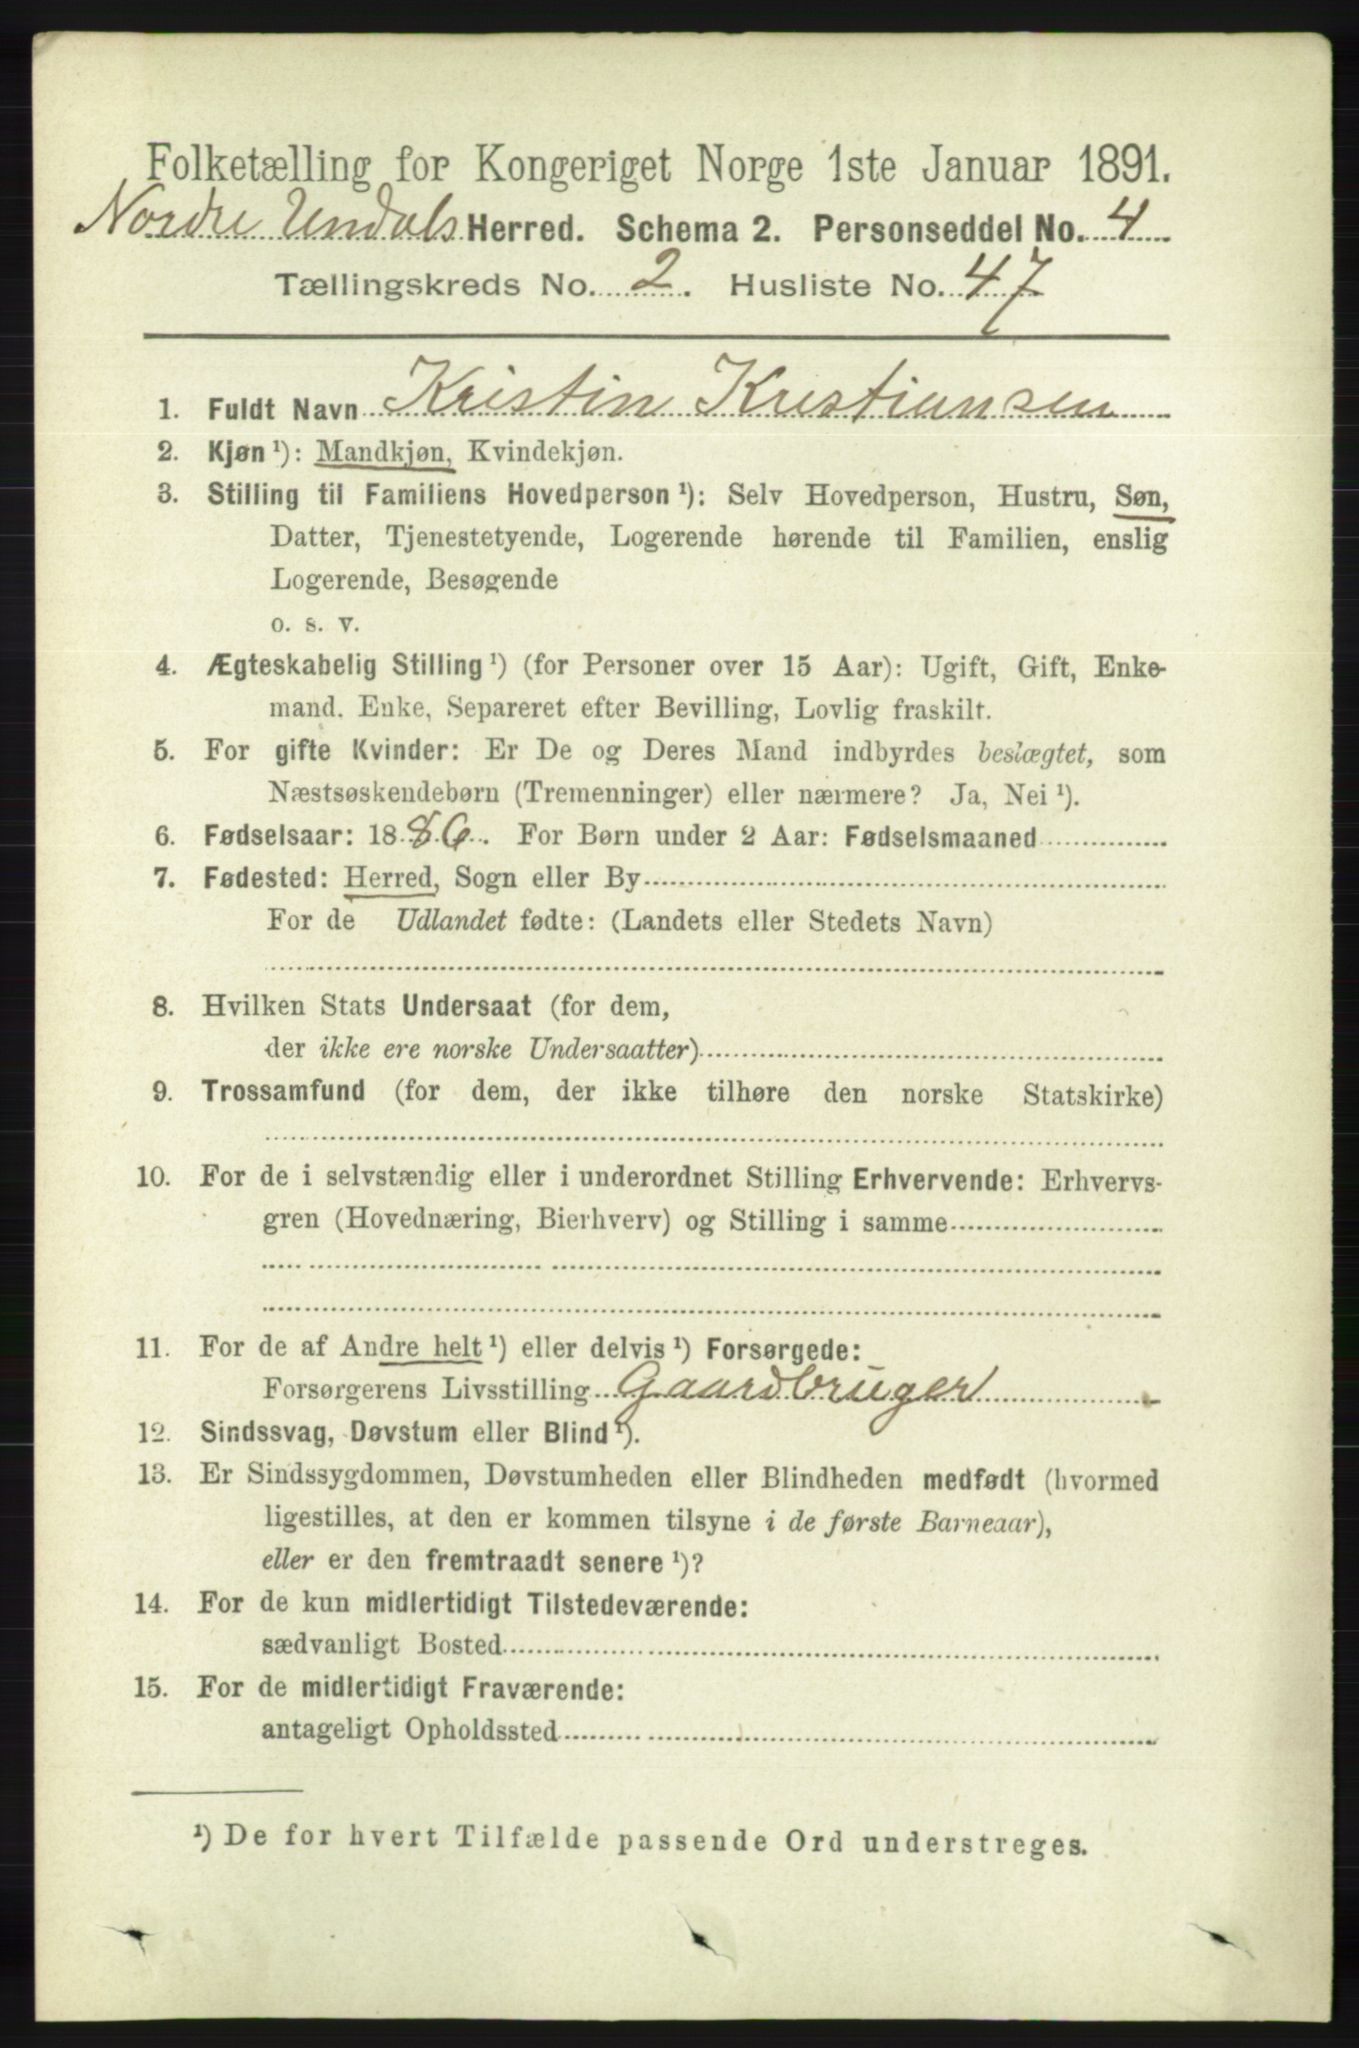 Folketælling for Kongeriget Norge 1ste Januar 1891.
Nordre Undals Herred. Schema 2. Personseddel No. 4
Tællingskreds No. 2. Husliste No. 47
1. Fuldt Navn Kristin Kristiansen
2. Kjøn ¹): Mandkjøn, Kvindekjøn.
3. Stilling til Familiens Hovedperson ¹): Selv Hovedperson, Hustru, Søn,
Datter, Tjenestetyende, Logerende hørende til Familien, enslig
Logerende, Besøgende
o. s. v.
4. Ægteskabelig Stilling ¹) (for Personer over 15 Aar): Ugift, Gift, Enke-
mand. Enke, Separeret efter Bevilling, Lovlig fraskilt.
5. For gifte Kvinder: Er De og Deres Mand indbyrdes beslægtet, som
Næstsøskendebørn (Tremenninger) eller nærmere? Ja, Nei ¹).
6. Fødselsaar: 1886. For Børn under 2 Aar: Fødselsmaaned
7. Fødested: Herred, Sogn eller By
For de Udlandet fødte: (Landets eller Stedets Navn)
8. Hvilken Stats Undersaat (for dem,
der ikke ere norske Undersaatter)
9. Trossamfund (for dem, der ikke tilhøre den norske Statskirke)
10. For de i selvstændig eller i underordnet Stilling Erhvervende: Erhvervs-
gren (Hovednæring, Bierhverv) og Stilling i samme
11. For de af Andre helt ¹) eller delvis ¹) Forsørgede:
Forsørgerens Livsstilling Gaardbruger
12. Sindssvag, Døvstum eller Blind ¹).
13. Er Sindssygdommen, Døvstumheden eller Blindheden medfødt (hvormed
ligestilles, at den er kommen tilsyne i de første Barneaar),
eller er den fremtraadt senere ¹)?
14. For de kun midlertidigt Tilstedeværende:
sædvanligt Bosted
15. For de midlertidigt Fraværende:
antageligt Opholdssted
¹) De for hvert Tilfælde passende Ord understreges.